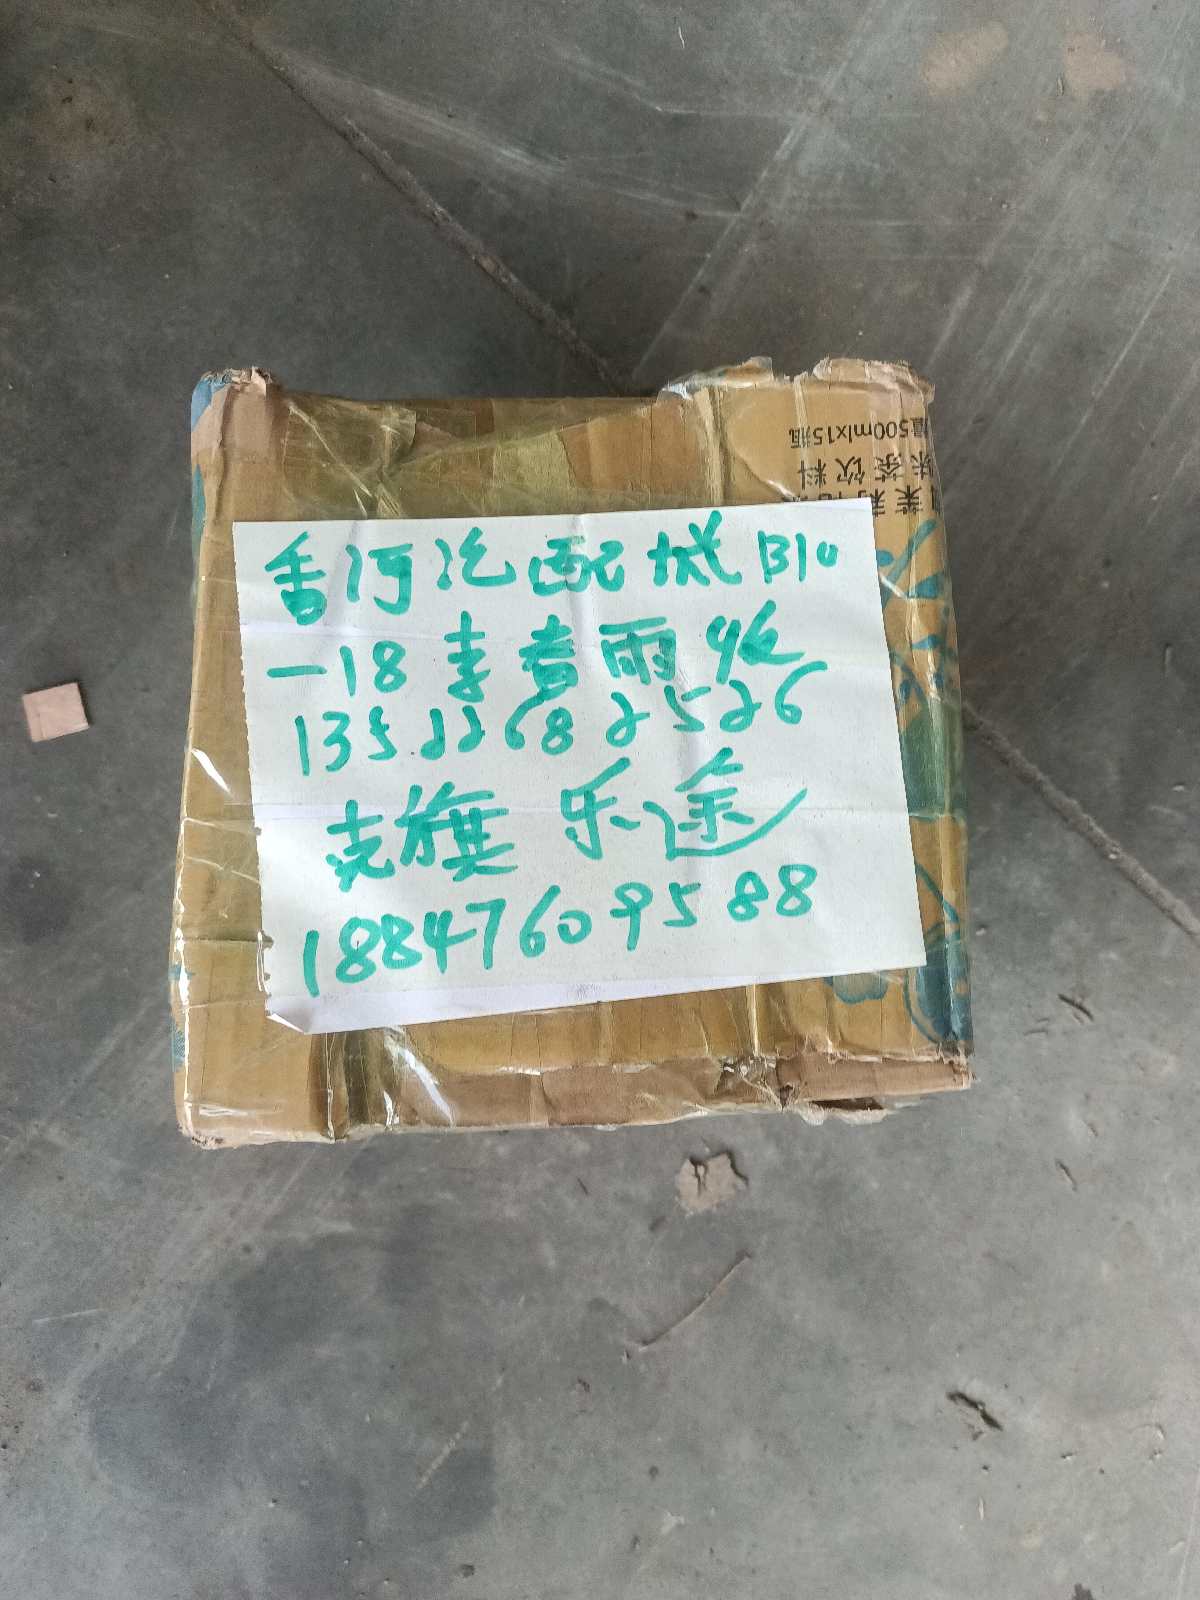 香河汽配城B10
-18 李春雨收
13522682526
克旗 乐途
18847609588
500mlx15瓶
味茶饮料
茉莉